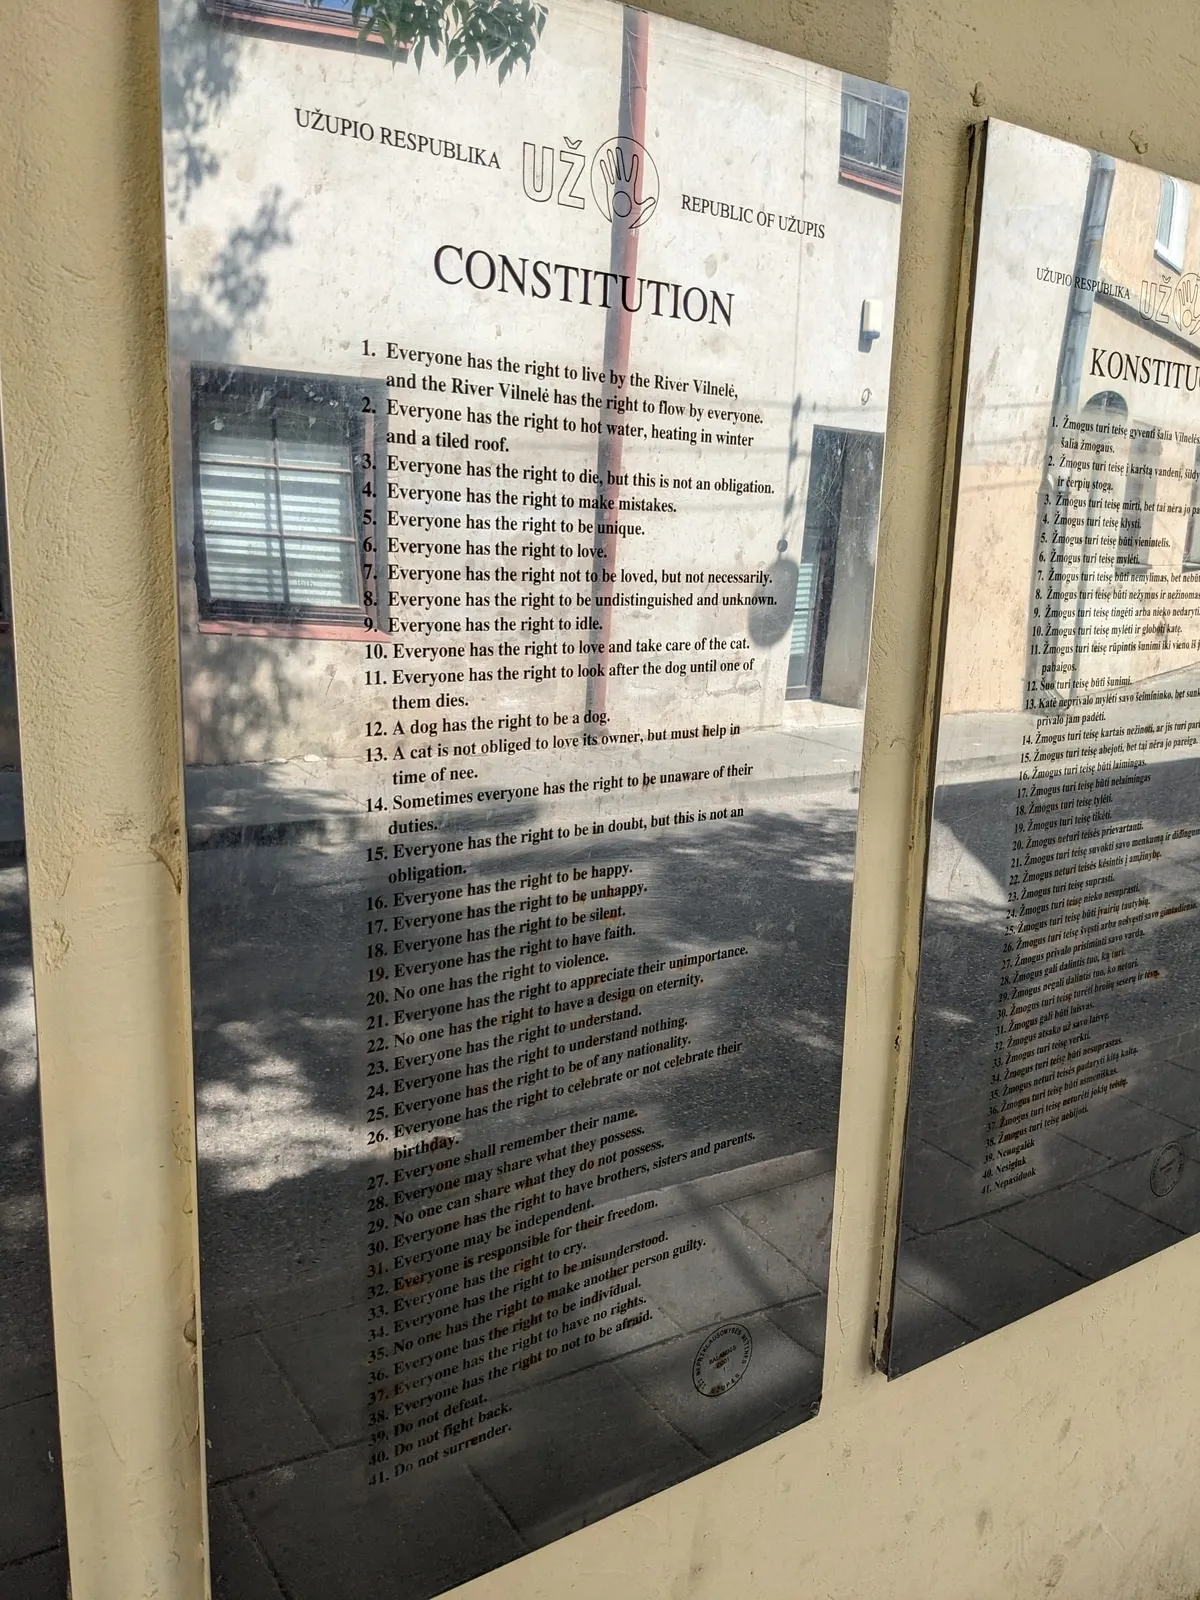 UŽUPIO RESPUBLIKA
UŽ
REPUBLIC OF UŽUPIS
CONSTITUTION
1. Everyone has the right to live by the River Vilnelė,
and the River Vilnelė has the right to flow by everyone.
2. Everyone has the right to hot water, heating in winter
and a tiled roof.
3. Everyone has the right to die, but this is not an obligation.
4. Everyone has the right to make mistakes.
5. Everyone has the right to be unique.
6. Everyone has the right to love.
7. Everyone has the right not to be loved, but not necessarily.
8. Everyone has the right to be undistinguished and unknown.
9. Everyone has the right to idle.
10. Everyone has the right to love and take care of the cat.
11. Everyone has the right to look after the dog until one of
them dies.
12. A dog has the right to be a dog.
13. A cat is not obliged to love its owner, but must help in
time of nee.
14. Sometimes everyone has the right to be unaware of their
duties.
15. Everyone has the right to be in doubt, but this is not an
obligation.
16. Everyone has the right to be happy.
17. Everyone has the right to be unhappy.
18. Everyone has the right to be silent.
19. Everyone has the right to have faith.
20. No one has the right to violence.
21. Everyone has the right to appreciate their unimportance.
22. No one has the right to have a design on eternity.
23. Everyone has the right to understand.
24. Everyone has the right to understand nothing.
25. Everyone has the right to be of any nationality.
26. Everyone has the right to celebrate or not celebrate their
birthday.
27. Everyone shall remember their name.
28. Everyone may share what they possess.
29. No one can share what they do not possess.
30. Everyone has the right to have brothers, sisters and parents.
31. Everyone may be independent.
32. Everyone is responsible for their freedom.
33. Everyone has the right to cry.
34. Everyone has the right to be misunderstood.
35. No one has the right to make another person guilty.
36. Everyone has the right to be individual.
37. Everyone has the right to have no rights.
38. Everyone has the right to not to be afraid.
39. Do not defeat.
40. Do not fight back.
41. Do not surrender.
UŽUPIO RESPUBLIKA
UŽ
KONSTITU
1. Žmogus turi teisę gyventi šalia Vilnelės,
šalia žmogaus.
2. Žmogus turi teisę į karštą vandenį, šildy
ir čerpių stogą.
3. Žmogus turi teisę mirti, bet tai nėra jo pa
4. Žmogus turi teisę klysti.
5. Žmogus turi teisę būti vienintelis.
6. Žmogus turi teisę mylėti.
7. Žmogus turi teisę būti nemylimas, bet nebū
8. Žmogus turi teisę būti nežymus ir nežinomas
9. Žmogus turi teisę tingėti arba nieko nedaryti.
10. Žmogus turi teisę mylėti ir globoti katę.
11. Žmogus turi teisę rūpintis šunimi iki vieno iš j
pabaigos.
12. Šuo turi teisę būti šunimi.
13. Katė neprivalo mylėti savo šeimininko, bet sunk
privalo jam padėti.
14. Žmogus turi teisę kartais nežinoti, ar jis turi par
15. Žmogus turi teisę abejoti, bet tai nėra jo pareiga.
16. Žmogus turi teisę būti laimingas.
17. Žmogus turi teisę būti nelaimingas
18. Žmogus turi teisę tylėti.
19. Žmogus turi teisę tikėti.
20. Žmogus neturi teisės prievartauti.
21. Žmogus turi teisę suvokti savo menkumą ir didingum
22. Žmogus neturi teisės kėsintis į amžinybę.
23. Žmogus turi teisę suprasti.
24. Žmogus turi teisę nieko nesuprasti.
25. Žmogus turi teisę būti įvairių tautybių.
26. Žmogus turi teisę švęsti arba nešvęsti savo gimtadienio.
27. Žmogus privalo prisiminti savo vardą.
28. Žmogus gali dalintis tuo, ką turi.
29. Žmogus negali dalintis tuo, ko neturi.
30. Žmogus turi teisę turėti brolių seserų ir tėvų.
31. Žmogus gali būti laisvas.
32. Žmogus atsako už savo laisvę.
33. Žmogus turi teisę verkti.
34. Žmogus turi teisę būti nesuprastas.
35. Žmogus neturi teisės padaryti kitą kaltą.
36. Žmogus turi teisę būti asmeniškas.
37. Žmogus turi teisę neturėti jokių teisių.
38. Žmogus turi teisę nebijoti.
39. Nenugalėk
40. Nesigink
41. Nepasiduok